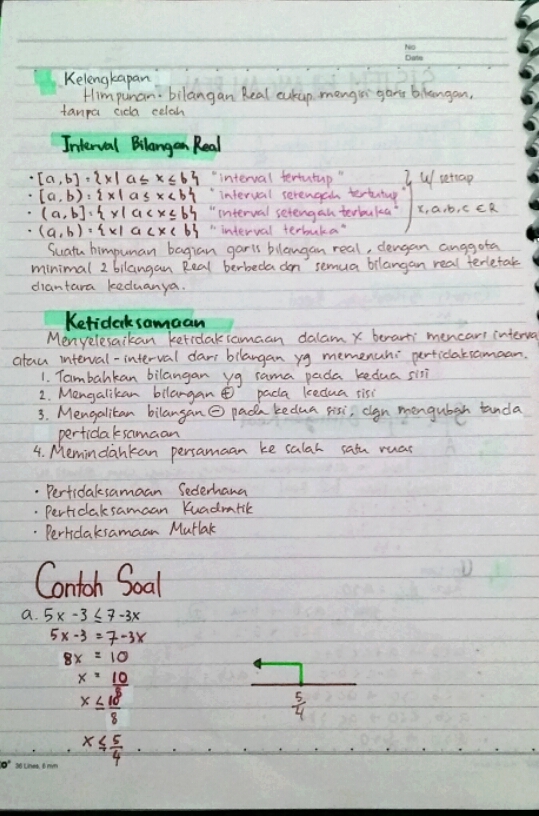 No
Date
Kelengkapan
Himpunan bilangan Real cukup mengisi garis bilangan,
tanpa cida celah
Interval Bilangan Real
• [a,b] = {x| a ≤ x ≤ b} "interval tertutup" } u/ setiap
• [a,b) = {x| a ≤ x < b} "interval setengah tertutup"
• (a,b] = {x| a < x ≤ b} "interval setengah terbuka" x,a,b,c ∈ R
• (a,b) = {x| a < x < b} "interval terbuka"
Suatu himpunan bagian garis bilangan real, dengan anggota
minimal 2 bilangan Real berbeda dan semua bilangan real terletak
diantara keduanya.
Ketidaksamaan
Menyelesaikan ketidaksamaan dalam X berarti mencari interval
atau interval-interval dari bilangan yg memenuhi pertidaksamaan.
1. Tambahkan bilangan yg sama pada kedua sisi
2. Mengalikan bilangan ⊕ pada kedua sisi
3. Mengalikan bilangan ⊖ pada kedua sisi, dgn mengubah tanda
pertidaksamaan
4. Memindahkan persamaan ke salah satu ruas
• Pertidaksamaan Sederhana
• Pertidaksamaan Kuadratik
• Pertidaksamaan Mutlak
Contoh Soal
a. 5x - 3 ≤ 7 - 3x
5x - 3 = 7 - 3x
8x = 10
x = 10/8
x ≤ 10/8
x ≤ 5/4
5/4
36 Lines, 8 mm